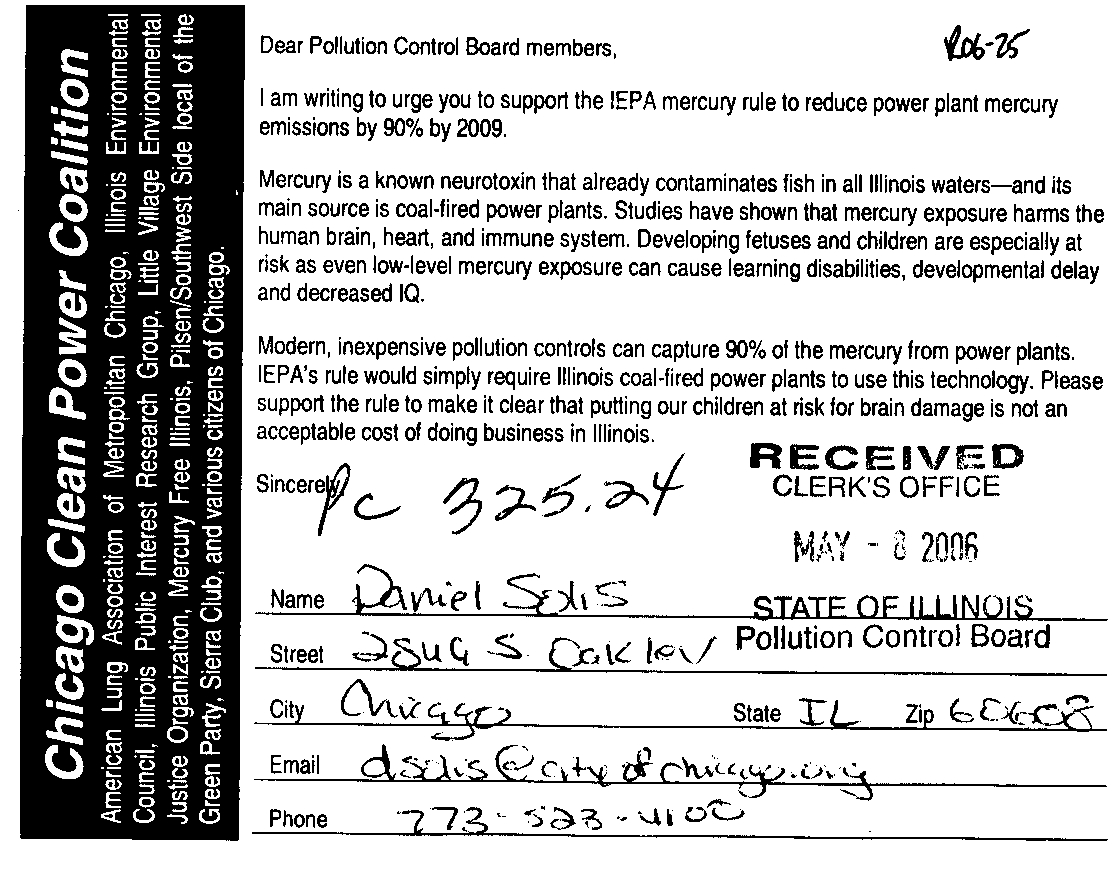 Chicago Clean Power Coalition
American Lung Association of Metropolitan Chicago, Illinois Environmental
Council, Illinois Public Interest Research Group, Little Village Environmental
Justice Organization, Mercury Free Illinois, Pilsen/Southwest Side local of the
Green Party, Sierra Club, and various citizens of Chicago.
Dear Pollution Control Board members,
R06-25
I am writing to urge you to support the IEPA mercury rule to reduce power plant mercury
emissions by 90% by 2009.
Mercury is a known neurotoxin that already contaminates fish in all Illinois waters—and its
main source is coal-fired power plants. Studies have shown that mercury exposure harms the
human brain, heart, and immune system. Developing fetuses and children are especially at
risk as even low-level mercury exposure can cause learning disabilities, developmental delay
and decreased IQ.
Modern, inexpensive pollution controls can capture 90% of the mercury from power plants.
IEPA's rule would simply require Illinois coal-fired power plants to use this technology. Please
support the rule to make it clear that putting our children at risk for brain damage is not an
acceptable cost of doing business in Illinois.
RECEIVED
CLERK'S OFFICE
Sincerely, pc 325.24
MAY - 8 2006
Name Daniel Solis
STATE OF ILLINOIS
Street S. Oakley
Pollution Control Board
City Chicago State IL Zip 60608
Email dsolis@cityofchicago.org
Phone 773-523-4100